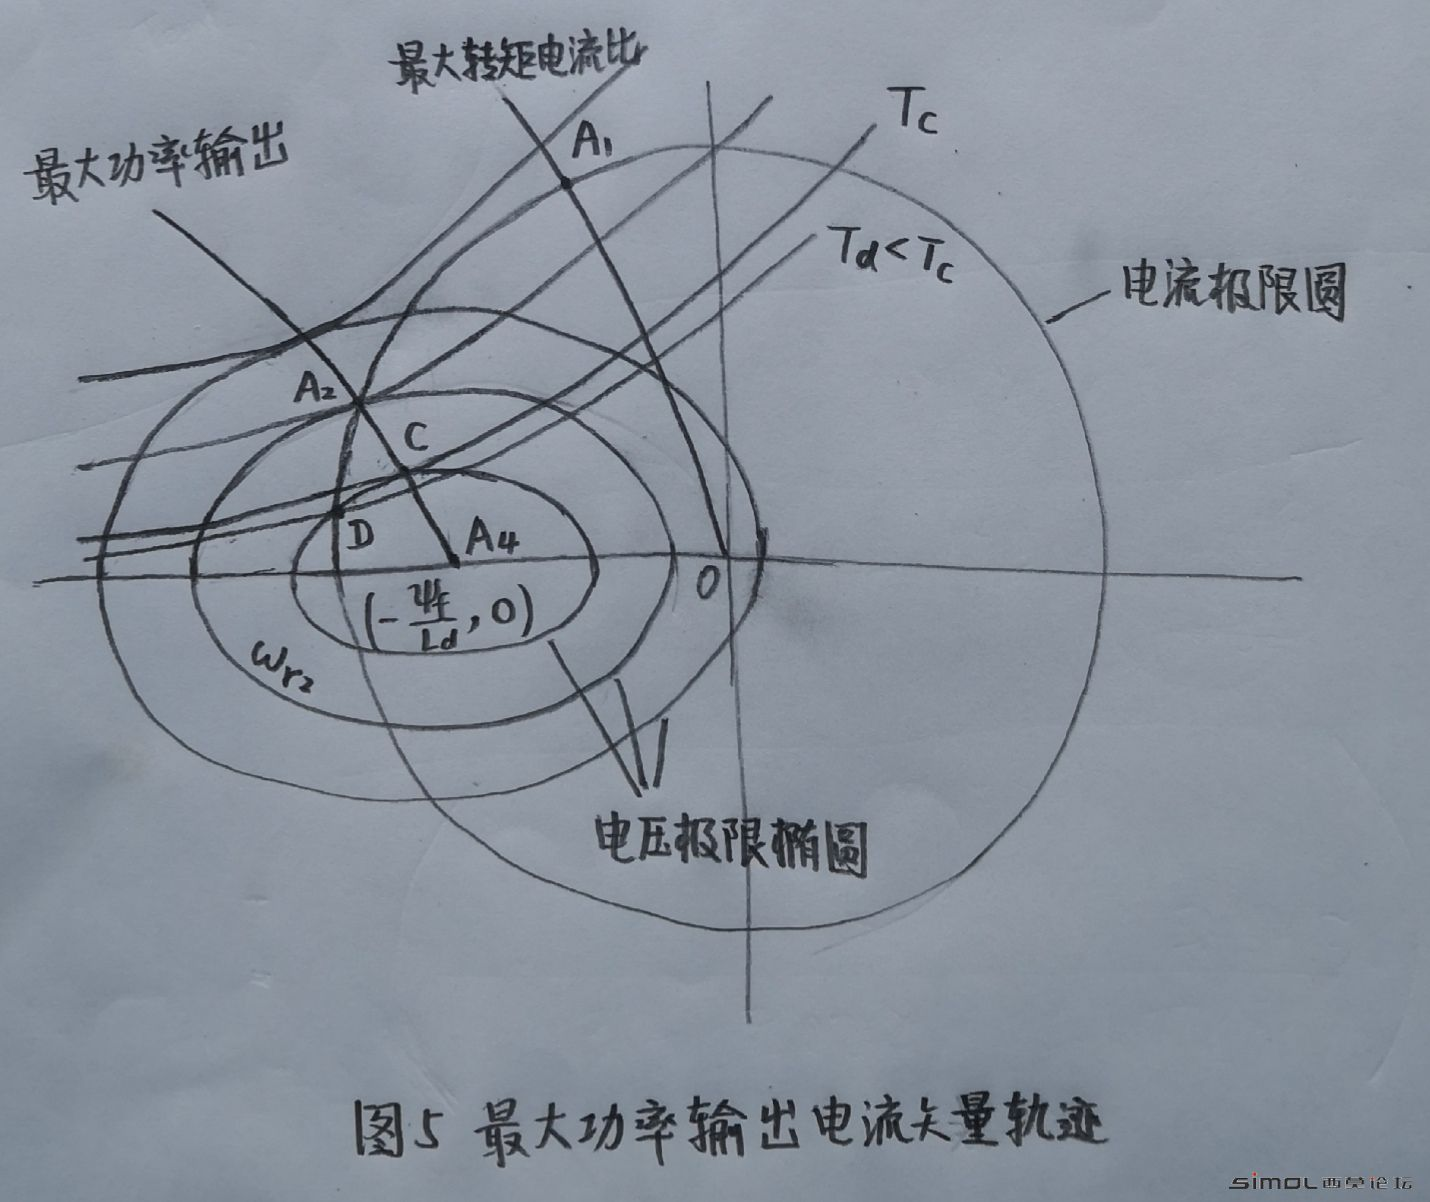 最大转矩电流比
A₁
T_C
最大功率输出
T_d<T_C
电流极限圆
A₂
C
D
A₄
O
(-ψf/Ld, 0)
ωr₂
电压极限椭圆
图5 最大功率输出电流矢量轨迹
simol西莫论坛